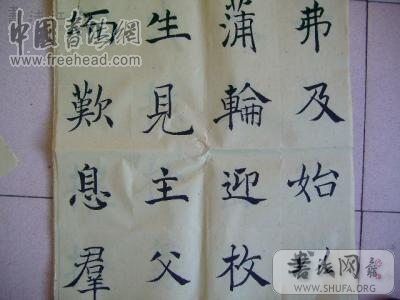 中國書法網
www.freehead.com
弗及始
蒲輪迎枚
生見主父
歎息羣
書法网
WWW.SHUFA.ORG